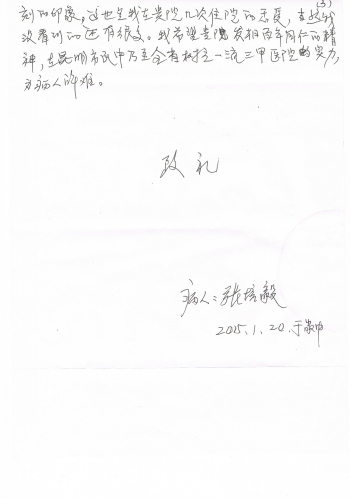 (3)
刻的印象,这也是我在贵院几次住院的感受,当然我
没看到的还有很多。我希望贵院发扬百年同仁的精
神,在昆明市民中乃至全省树立一流三甲医院的实力,
为病人解难。
致礼
病人:张培毅
2015.1.20.于昆明